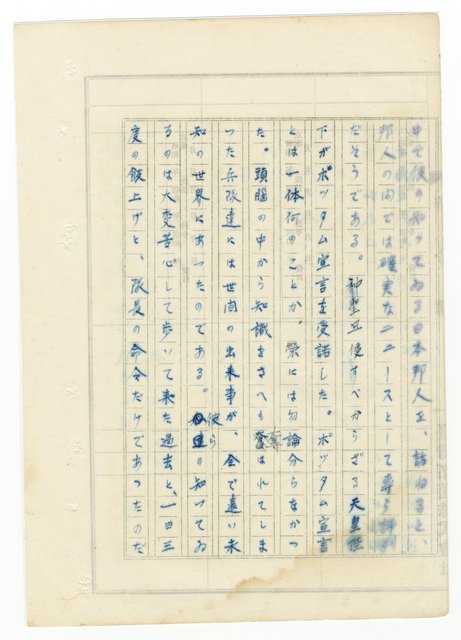 中で彼の知つてゐる日本邦人を、訪ねると、
邦人の間では確実なニュースとして専ら評判
だそうである。神聖且侵すべからざる天皇陛
下がポツタム宣言を受諾した。ポツタム宣言
とは一体何のことか。榮には勿論分らなかつ
た。頭脳の中から知識をさへも奪はれてしま
つた兵隊達には世間の出来事が、全で遠い未
知の世界にあつたのである。彼らの知つてゐ
るのは大変苦心して歩いて来た過去と、一日三
度の飯上げと、隊長の命令だけであつたのだ